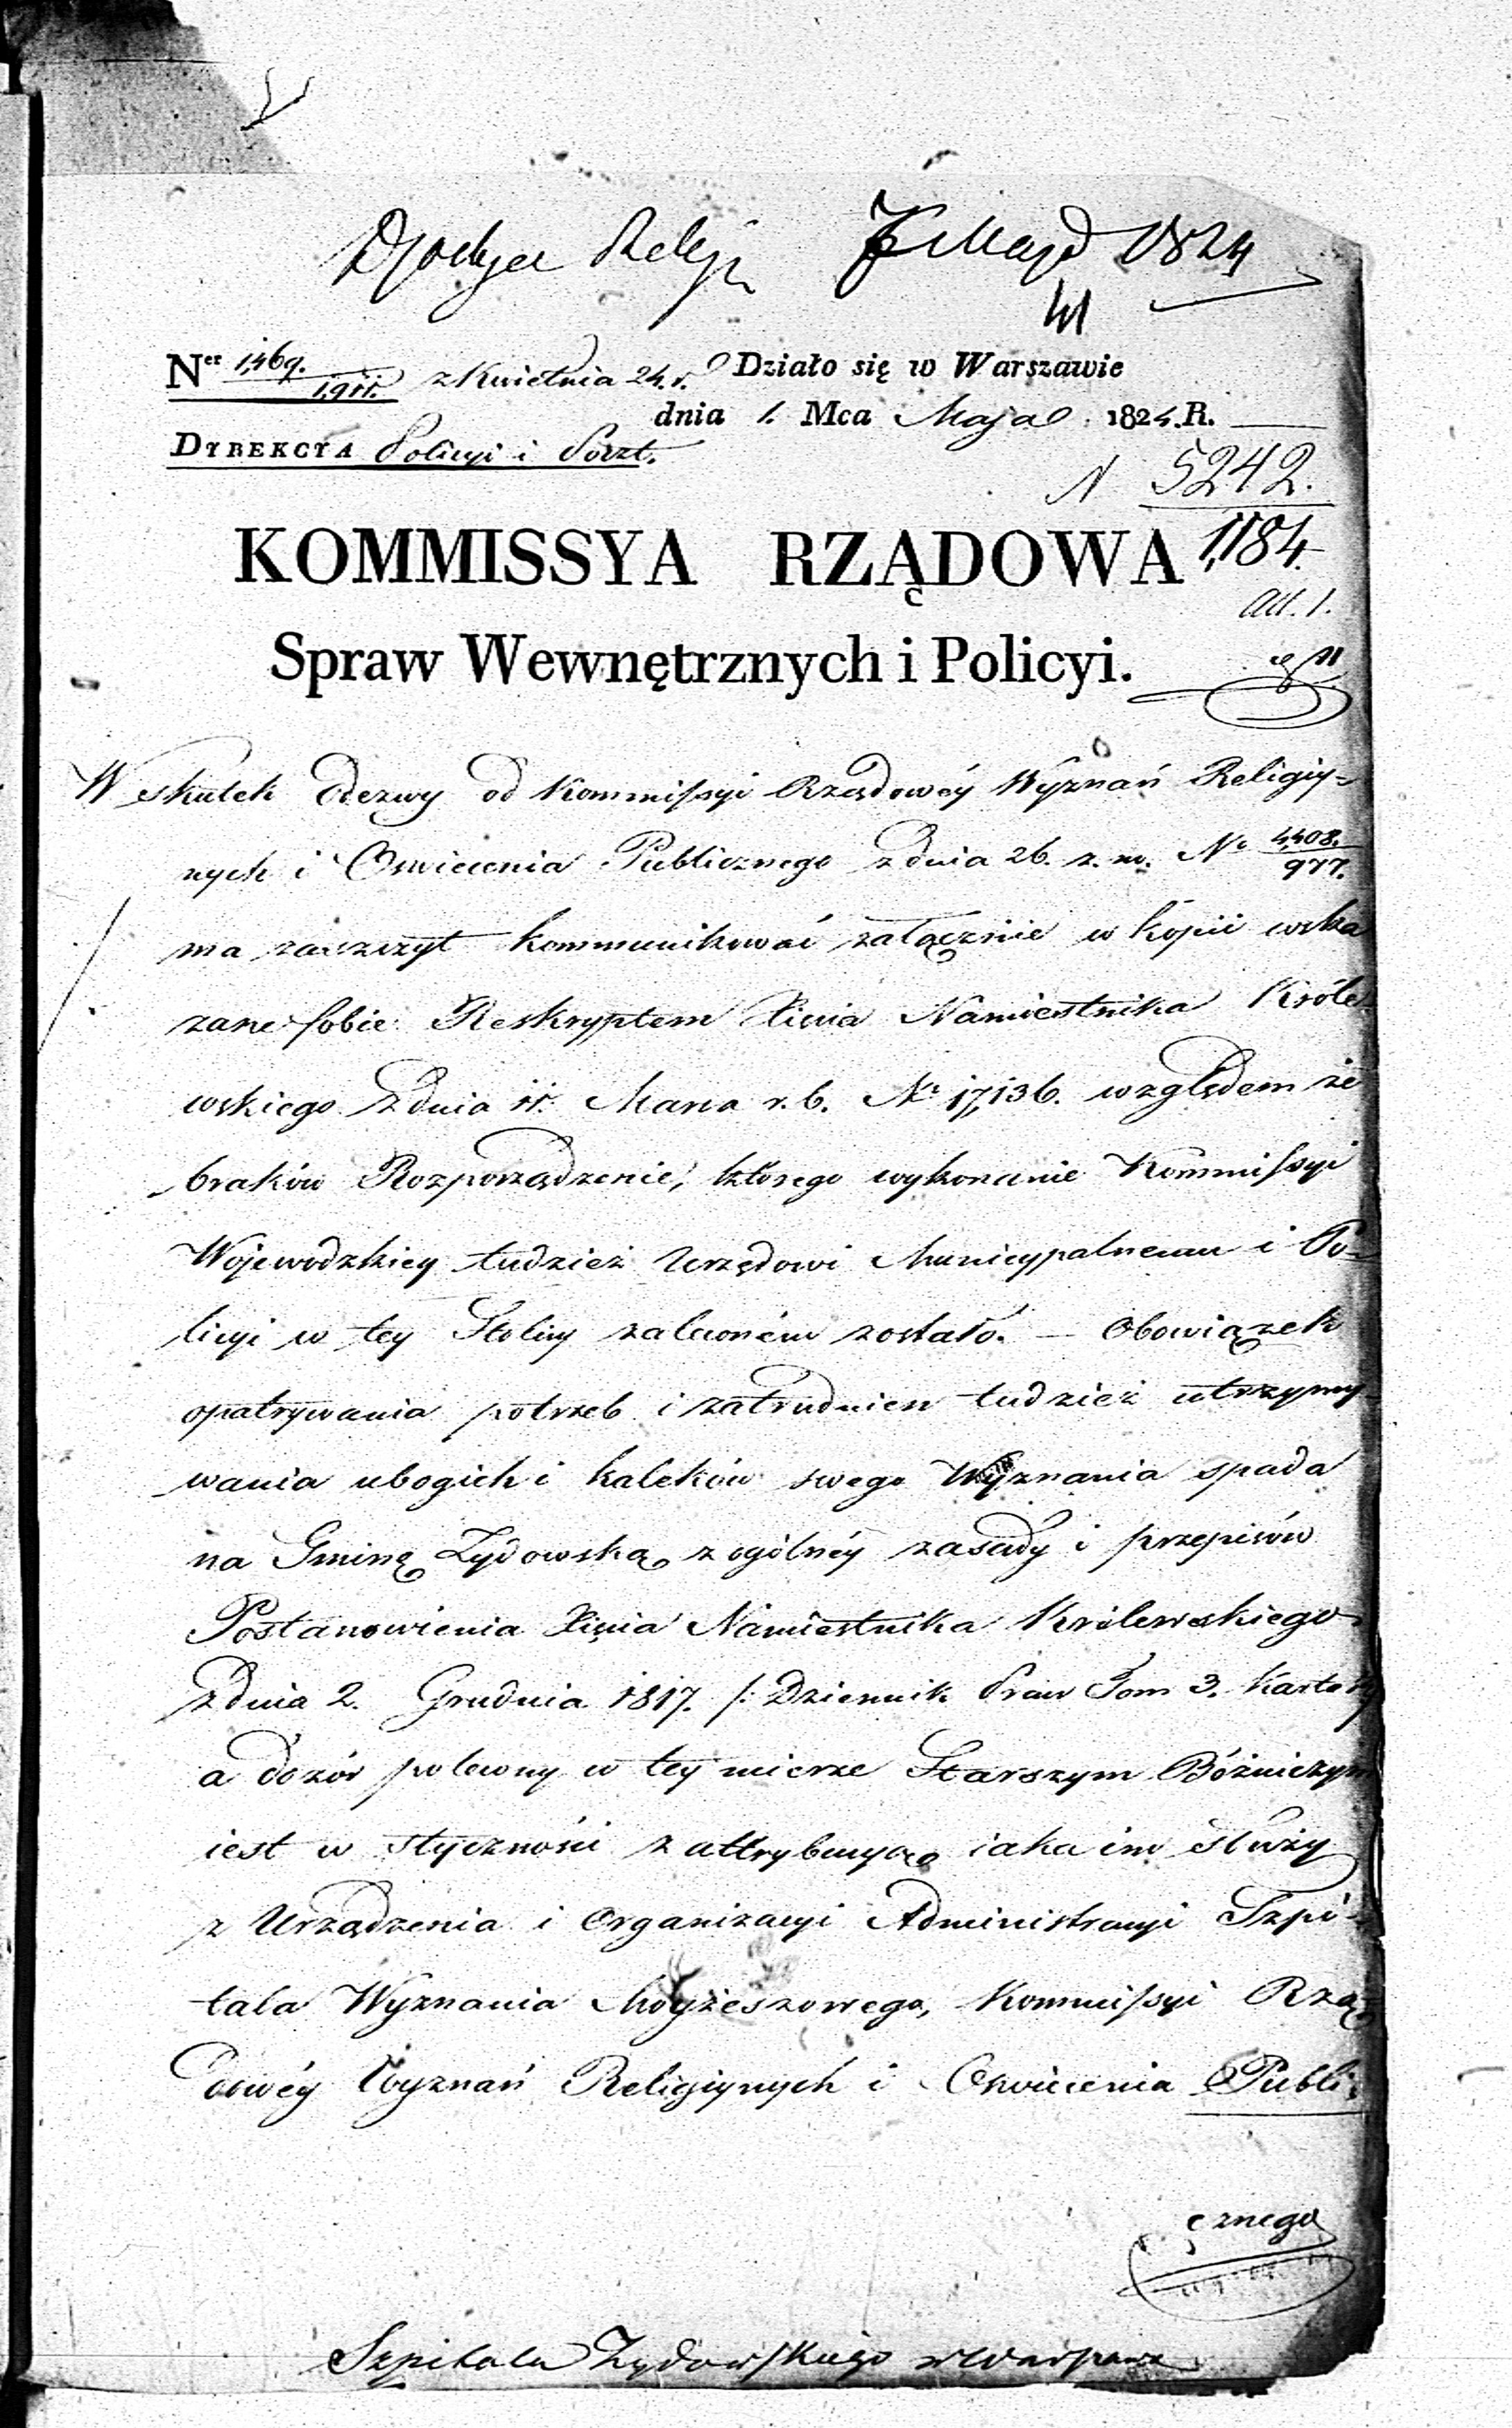 Maja 1824
Ner 1,469. / 1,911. z Kwietnia 24. r. Działo się w Warszawie
dnia 1. Mca Maja 1824. R.
DYREKCYA Policyi i Poczt.
N 5242.
1,184.
ad. 1.
KOMMISSYA RZĄDOWA
Spraw Wewnętrznych i Policyi.
W skutek Odezwy od Kommissyi Rządowéy Wyznań Religiy=
nych i Oswiecenia Publicznego z dnia 26. z. m. No 4,408. / 977.
ma zaszczyt kommunikować załącznie w kopii wska
zane sobie Reskryptem Xięcia Namiestnika Króle
wskiego z dnia 11. Marca r. b. Nr 17,136. względem że
braków Rozporządzenie, którego wykonanie Kommissyi
Wojewodzkiey tudzież Urzędowi Municypalnemu i Po=
licyi w tey Stolicy zaleconém zostało. — Obowiązek
opatrywania potrzeb i zatrudnien tudzież utrzymy=
wania ubogich i kaleków swego Wyznania spada
na Gminę Żydowską z ogólnéy zasady i przepisów
Postanowienia Xięcia Namiestnika Królewskiego
z dnia 2. Grudnia 1817. /: Dziennik Praw Tom 3. Karta
a dozór polecony w tey mierze Starszym Bóżniczym
iest w styczności z attrybucyą iaka im służy
z Urządzenia i Organizacyi Administracyi Szpi=
tala Wyznania Moyżeszowego, Kommissyi Rzą
dowéy Wyznań Religiynych i Oswiecenia Publi=
cznego
Szpitala Żydowskiego w Warszawie